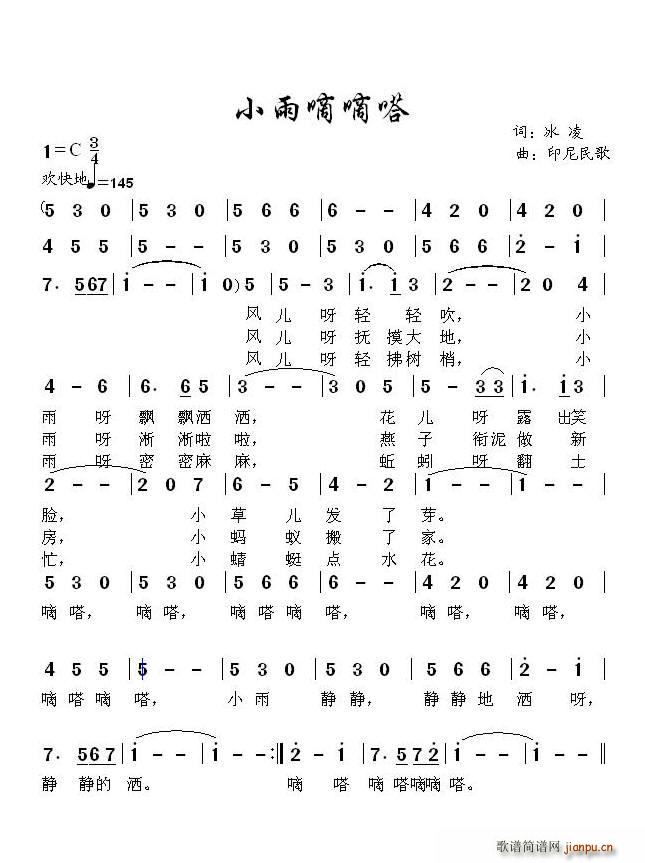 小雨嘀嘀嗒
词：冰 凌
1=C 3/4
曲：印尼民歌
欢快地♩=145
(5 3 0 | 5 3 0 | 5 6 6 | 6 - - | 4 2 0 | 4 2 0 |
4 5 5 | 5 - - | 5 3 0 | 5 3 0 | 5 6 6 | 2̇ - 1̇ |
7. 5 6 7 | 1̇ - - | 1̇ 0) 5 | 5 - 3 | 1̇. 1̇ 3 | 2 - - | 2 0 4 |
风 儿 呀 轻 轻 吹， 小
风 儿 呀 抚 摸 大 地， 小
风 儿 呀 轻 拂 树 梢， 小
4 - 6 | 6. 6 5 | 3 - - | 3 0 5 | 5 - 3 3 | 1̇. 1̇ 3 |
雨 呀 飘 飘 洒 洒， 花 儿 呀 露 出 笑
雨 呀 淅 淅 啦 啦， 燕 子 衔 泥 做 新
雨 呀 密 密 麻 麻， 蚯 蚓 呀 翻 土
2 - - | 2 0 7 | 6 - 5 | 4 - 2 | 1̇ - - | 1̇ - - |
脸， 小 草 儿 发 了 芽。
房， 小 蚂 蚁 搬 了 家。
忙， 小 蜻 蜓 点 水 花。
5 3 0 | 5 3 0 | 5 6 6 | 6 - - | 4 2 0 | 4 2 0 |
嘀 嗒， 嘀 嗒， 嘀 嗒 嘀 嗒， 嘀 嗒， 嘀 嗒，
4 5 5 | 5 - - | 5 3 0 | 5 3 0 | 5 6 6 | 2̇ - 1̇ |
嘀 嗒 嘀 嗒， 小 雨 静 静， 静 静 地 洒 呀，
7. 5 6 7 | 1̇ - - | 1̇ - - :‖ 2̇ - 1̇ | 7. 5 7 2̇ | 1̇ - - | 1̇ - - ‖
静 静 的 洒。 嘀 嗒 嘀 嗒嘀嘀 嗒。
歌谱简谱网
jianpu.cn